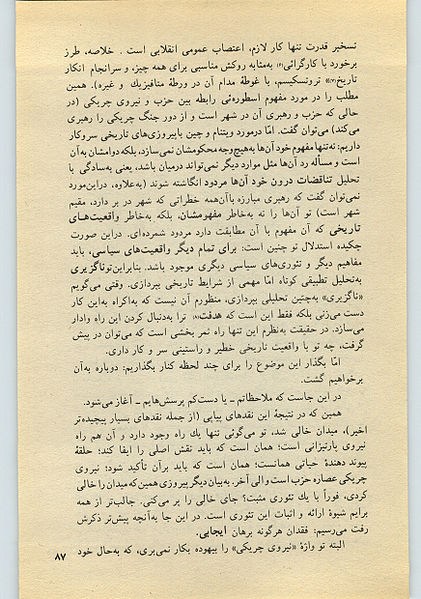 تسخیر قدرت تنها کار لازم، اعتصاب عمومی انقلابی است . خلاصه، طرز
برخورد با کارگرائی(۶) به‌مثابه روکش مناسبی برای همه چیز، و سرانجام انکار
تاریخ(۷)» تروتسکیسم، با غوطهٔ مدام آن در ورطهٔ متافیزیك و غیره). همین
مطلب را در مورد مفهوم اسطوره‌ئی رابطه بین حزب و نیروی چریکی (در
حالی که حزب و رهبری آن در شهر است و از دور جنگ چریکی را رهبری
می‌کند) می‌توان گفت. امّا درمورد ویتنام و چین باپیروزی‌های تاریخی سروکار
داریم: نه‌تنها مفهوم خود آن‌ها به‌هیچ‌وجه محکومشان نمی‌سازد، بلکه دوامشان به‌آن
است و مسأله رد آن‌ها مثل موارد دیگر نمی‌تواند درمیان باشد، یعنی به‌سادگی با
تحلیل تناقضات درون خود آن‌ها مردود انگاشته شوند (به‌علاوه، دراین‌مورد
نمی‌توان گفت که رهبری مبارزه باآن‌همه خطراتی که شهر در بر دارد، مقیم
شهر است) تو آن‌ها را نه به‌خاطر مفهومشان، بلکه به‌خاطر واقعیت‌های
تاریخی که آن مفهوم با آن مطابقت دارد مردود شمرده‌ای. دراین صورت
چکیده استدلال تو چنین است: برای تمام دیگر واقعیت‌های سیاسی، باید
مفاهیم دیگر و تئوری‌های سیاسی دیگری موجود باشد. بنابراین‌توناگزیری
به‌تحلیل تطبیقی کوتاه امّا مهمی از شرایط تاریخی بپردازی. وقتی می‌گویم
«ناگزیری» به‌چنین تحلیلی بپردازی، منظورم آن نیست که به‌اکراه به‌این کار
دست می‌زنی بلکه فقط این است که هدفت ترا به‌دنبال کردن این راه وادار
می‌سازد. در حقیقت به‌نظرم این تنها راه ثمر بخشی است که می‌توان در پیش
گرفت، چه تو با واقعیت تاریخی خطیر و راستینی سر و کار داری.
امّا بگذار این موضوع را برای چند لحظه کنار بگذاریم: دوباره به‌آن
برخواهیم گشت.
در این جاست که ملاحظاتم ـ یا دست‌کم پرسش‌هایم ـ آغاز می‌شود.
همین که در نتیجهٔ این نقدهای پیاپی (از جمله نقدهای بسیار پیچیده‌تر
اخیر)، میدان خالی شد، تو می‌گوئی تنها یك راه وجود دارد و آن هم راه
نیروی پارتیزانی است؛ همان است که باید نقش اصلی را ایفا کند؛ حلقهٔ
پیوند دهندهٔ حیاتی همانست؛ همان است که باید برآن تأکید شود؛ نیروی
چریکی عصاره حزب است و الی آخر. به‌بیان دیگر بپروزی همین‌که‌میدان را خالی
کردی، فوراً با یك تئوری مثبت؟ جای خالی را بر می‌کنی. جالب‌تر از همه
برایم شیوهٔ ارائه و اثبات این تئوری است. در این جا به‌آنچه پیش‌تر ذکرش
رفت می‌رسیم: فقدان هرگونه برهان ایجابی.
البته تو واژهٔ «نیروی چریکی» را بیهوده بکار نمی‌بری، که به‌حال خود
۸۷